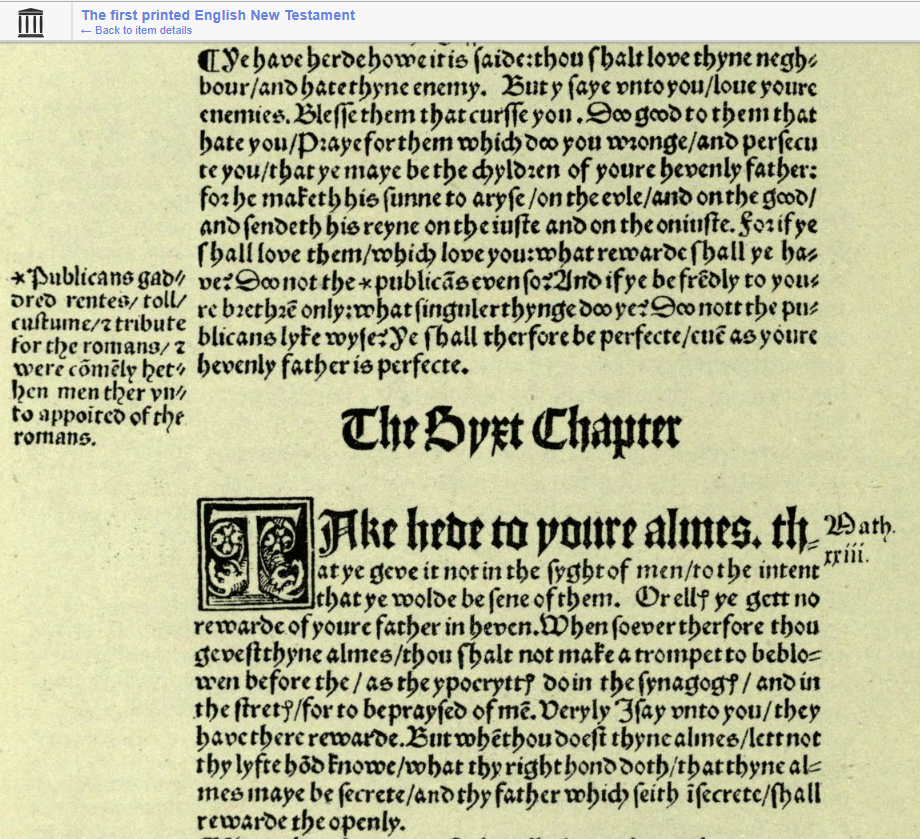 The first printed English New Testament
← Back to item details
¶Ye have herde howe it is saide: thou shalt love thyne negh⸗
bour/and hate thyne enemy. But y saye vnto you/love youre
enemies. Blesse them that cursse you. Doo good to them that
hate you/Praye for them which doo you wronge/and persecu
te you/that ye maye be the chyldren of youre hevenly father:
for he maketh his sunne to aryse/on the evle/and on the good/
and sendeth his reyne on the iuste and on the oniuste. For if ye
shall love them/which love you: what rewarde shall ye ha⸗
ve? Doo not the * publicãs even so? And if ye be frẽdly to you⸗
re brethrẽ only: what singuler thynge doo ye? Doo nott the pu⸗
blicans lyke wyse? Ye shall therfore be perfecte/evẽ as youre
hevenly father is perfecte.
*Publicans gad⸗
dred rentes/ toll/
custume/⁊ tribute
for the romans/ ⁊
were cõmẽly het⸗
hen men ther vn⸗
to appoited of the
romans.
The Syxt Chapter
TAke hede to youre almes. th⸗
at ye geve it not in the syght of men/to the intent
that ye wolde be sene of them. Or ellꝭ ye gett no
rewarde of youre father in heven. When soever therfore thou
gevest thyne almes/thou shalt not make a trompet to be blo⸗
wen before the/ as the ypocryttꝭ do in the synagogꝭ/ and in
the stretꝭ/for to be praysed of mẽ. Veryly I say vnto you/ they
have there rewarde. But whẽ thou doest thyne almes/lett not
thy lyfte hõd knowe/what thy right hond doth/that thyne al⸗
mes maye be secrete/and thy father which seith ĩ secrete/shall
rewarde the openly.
Math.
xxiii.